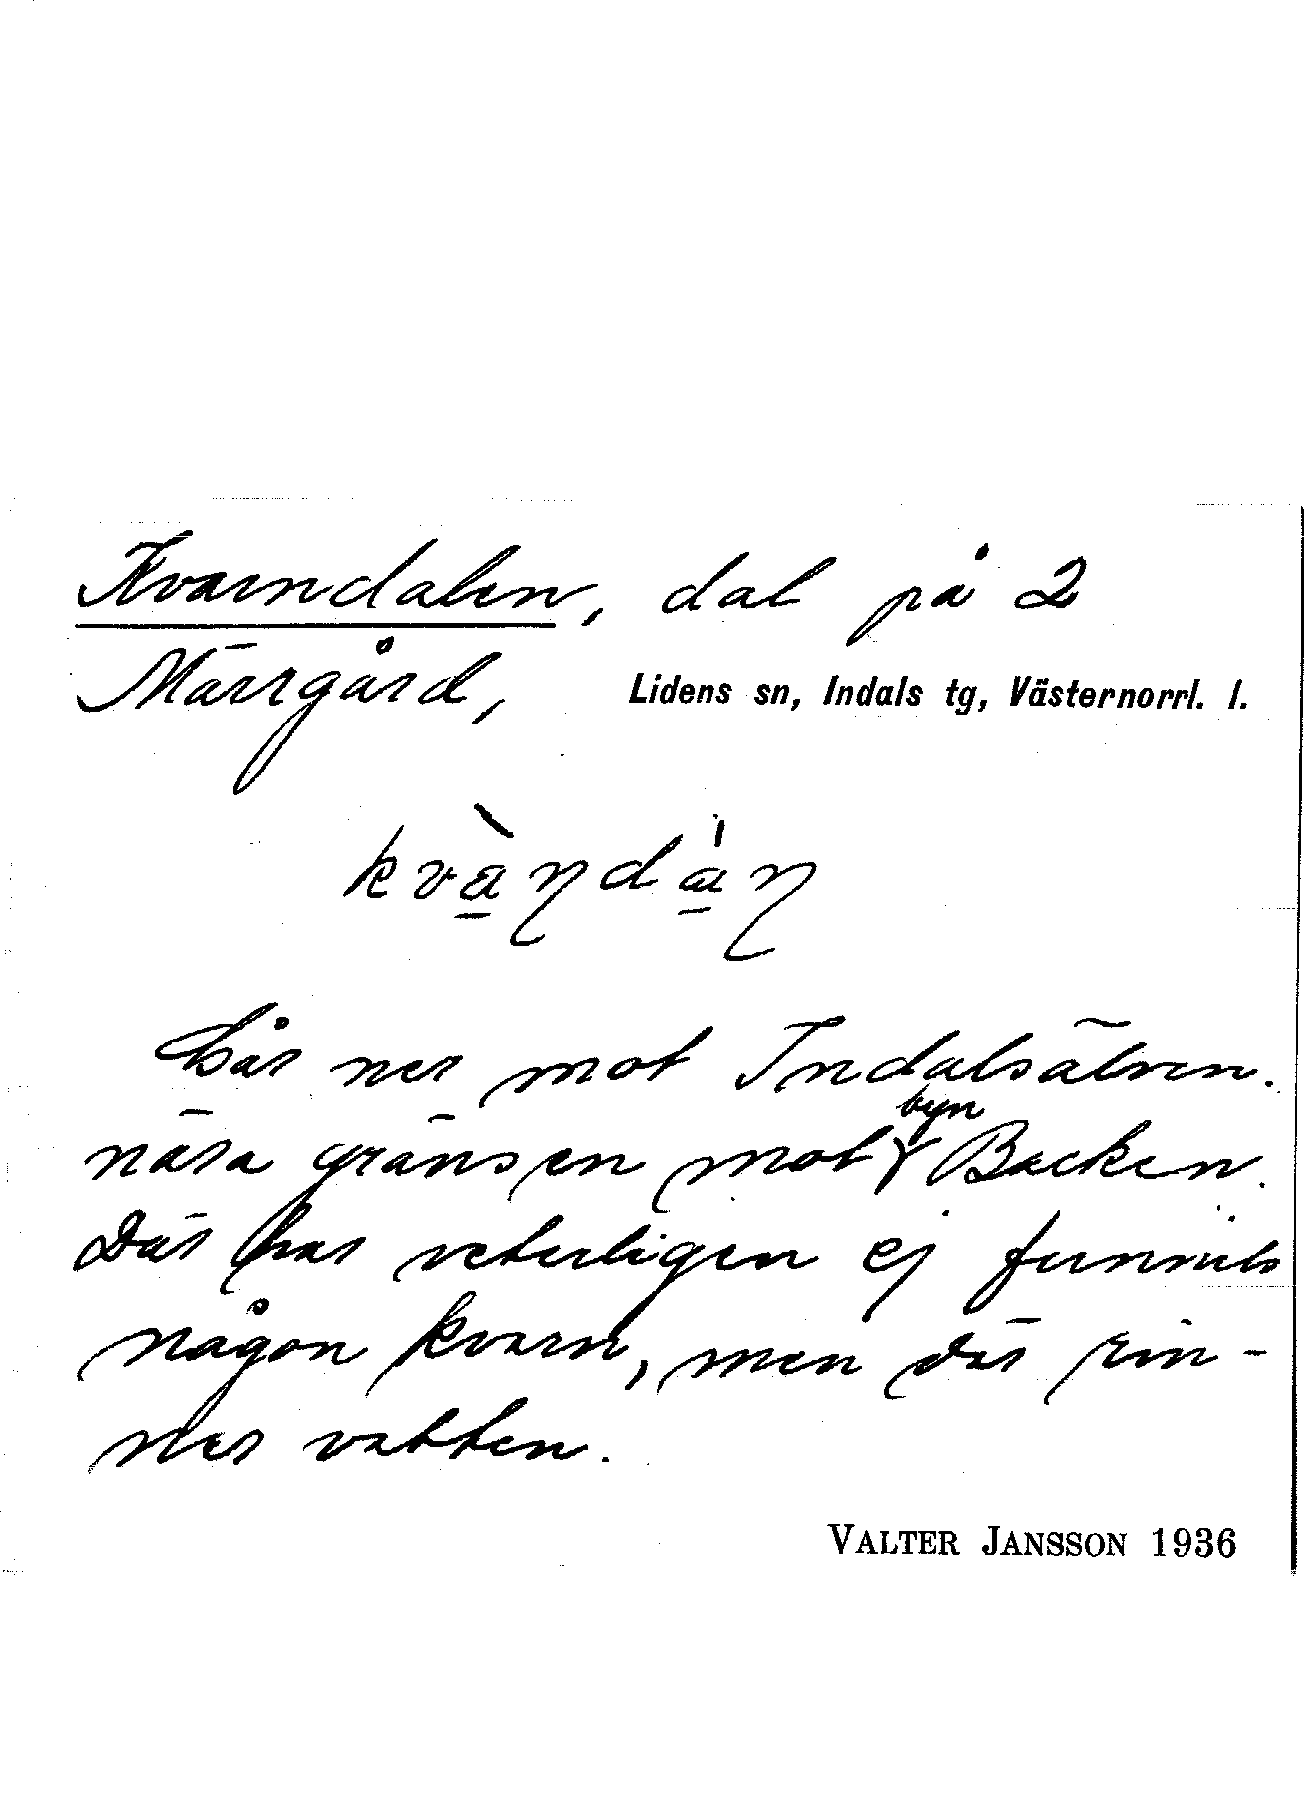 Kvarndalen, dal på 2
Märrgård, Lidens sn, Indals tg, Västernorrl. l.
kvàṇdàṇ
Går ner mot Indalsälven.
byn
nära gränsen mot Backen.
Där har veterligen ej funnits
någon kvarn, men där rin-
ner vatten.
VALTER JANSSON 1936